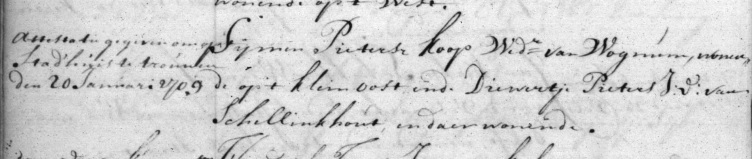 wonende op 't West.
Attestatie gegeven om op
Stadhuijs te trouwen
den 20 Januari 1709
Sijmen Pietersz Koop Wedr van Wognum, wonen-
de op 't klein oost ende Diewertje Pieters J: D: van
Schellinkhout, en daer wonende.